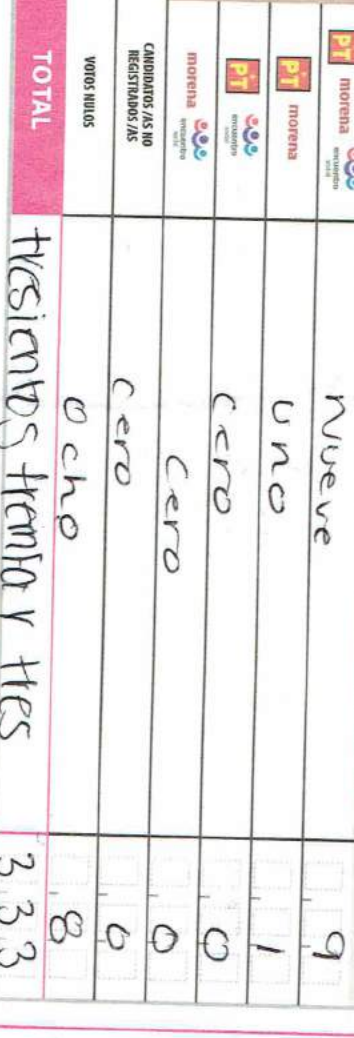 PT morena encuentro social Nueve 9
PT morena uno 1
PT encuentro social cero 0
morena encuentro social cero 0
CANDIDATOS /AS NO REGISTRADOS /AS cero 0
VOTOS NULOS ocho 8
TOTAL tresientos treinta y tres 333